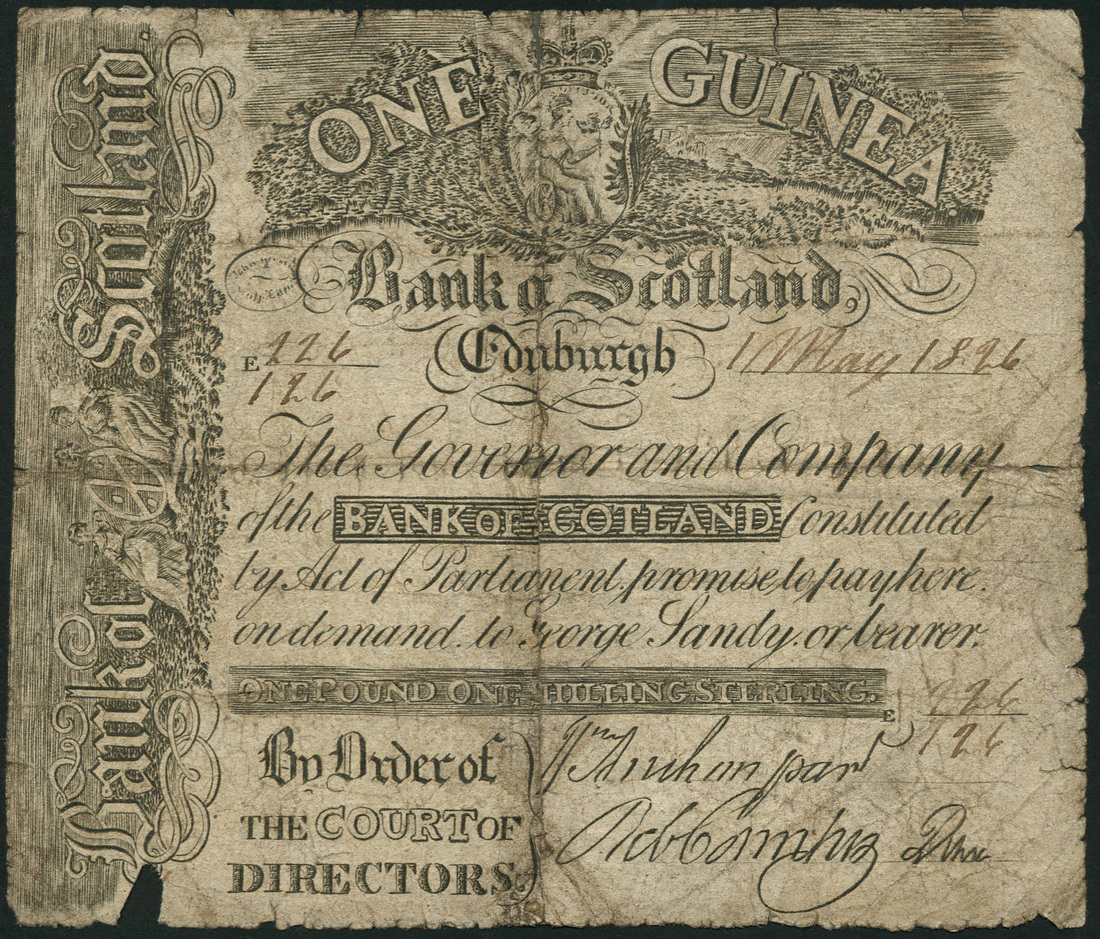 Bank of Scotland.
ONE GUINEA.
Bank of Scotland,
E 226
126
Edinburgh
1 May 1826
The Governor and Company
of the BANK OF SCOTLAND Constituted
by Act of Parliament, promise to pay here
on demand to George Sandy or bearer.
ONE POUND ONE SHILLING STERLING.
E 226
126
By Order of
THE COURT OF
DIRECTORS.